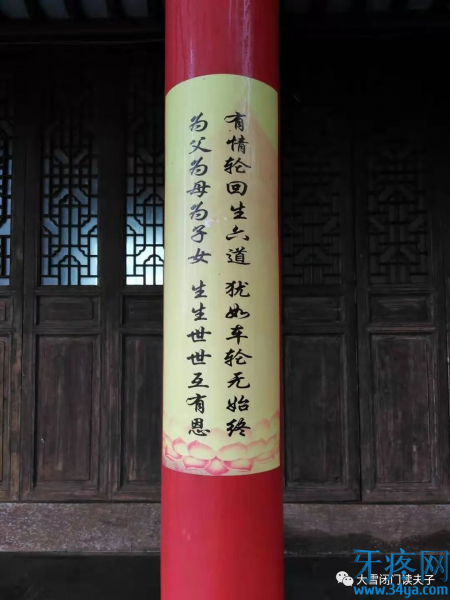 有情轮回生六道 犹如车轮无始终
为父为母为子女 生生世世互有恩
大雪闭门读夫子
牙疼网
www.34ya.com